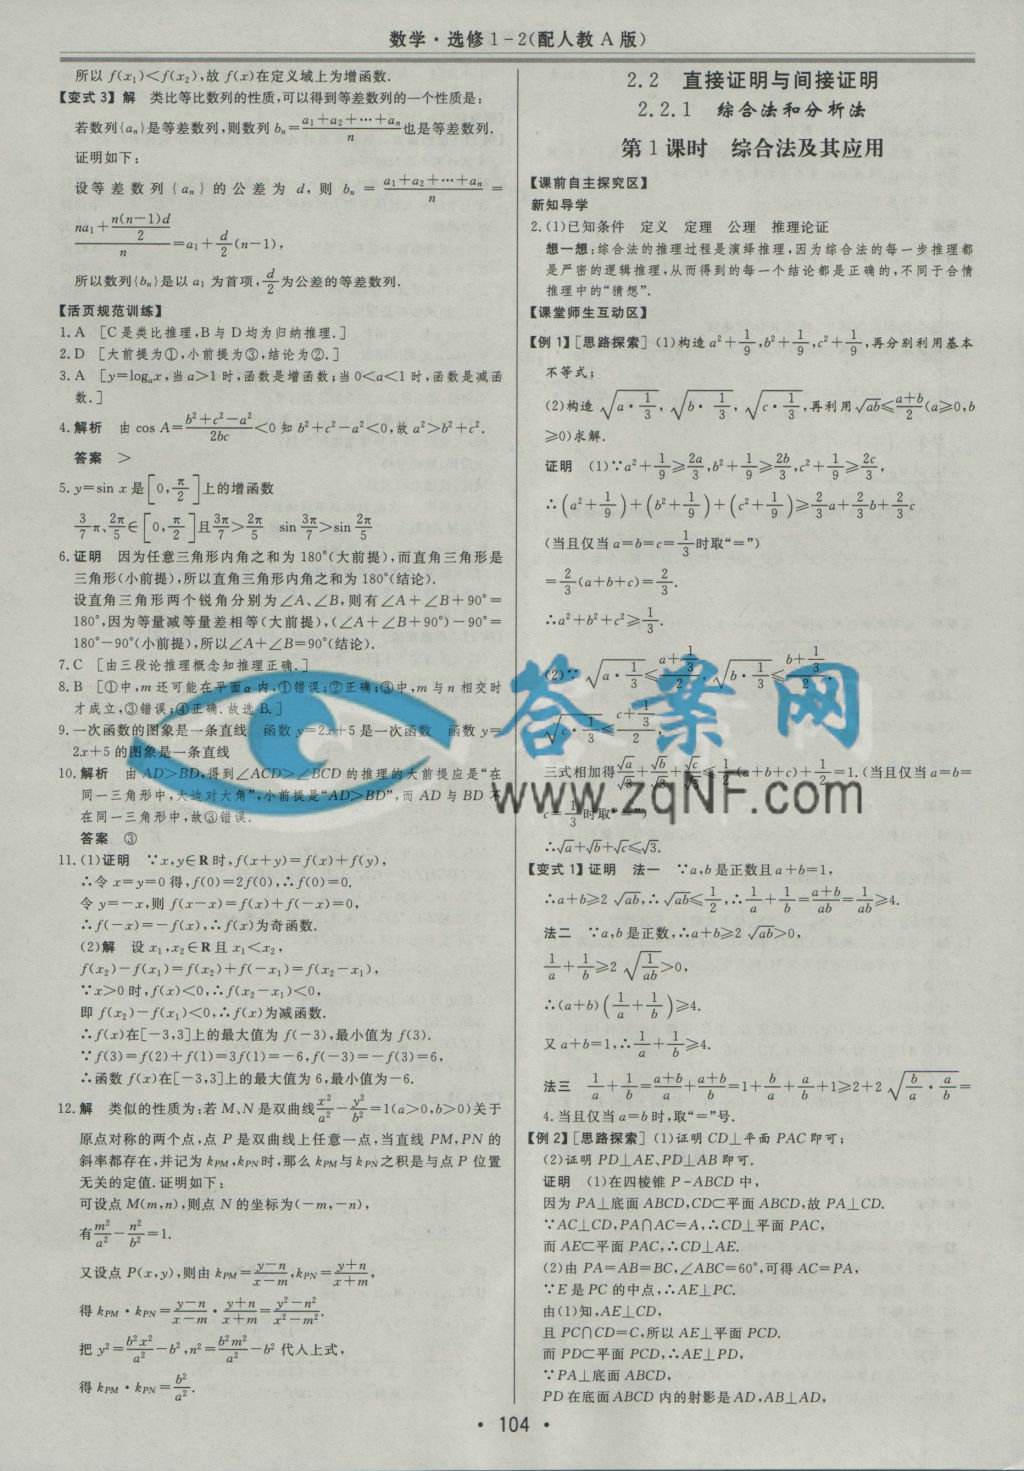 数学·选修1-2(配人教A版)
所以 f(x₁)<f(x₂),故 f(x)在定义域上为增函数.
【变式3】解 类比等比数列的性质,可以得到等差数列的一个性质是:
若数列{aₙ}是等差数列,则数列 bₙ=(a₁+a₂+…+aₙ)/n 也是等差数列.
证明如下:
设等差数列{aₙ}的公差为 d,则 bₙ=(a₁+a₂+…+aₙ)/n=
(na₁+n(n-1)d/2)/n=a₁+d/2(n-1),
所以数列{bₙ}是以 a₁ 为首项,d/2为公差的等差数列.
【活页规范训练】
1.A [C是类比推理,B与D均为归纳推理.]
2.D [大前提为①,小前提为③,结论为②.]
3.A [y=logₐx,当a>1时,函数是增函数;当0<a<1时,函数是减函
数.]
4.解析 由 cos A=(b²+c²-a²)/2bc<0 知 b²+c²-a²<0,故 a²>b²+c².
答案 >
5.y=sin x 是[0,π/2]上的增函数
3/7π、2π/5∈[0,π/2]且3π/7>2π/5 sin 3π/7>sin 2π/5
6.证明 因为任意三角形内角之和为180°(大前提),而直角三角形是
三角形(小前提),所以直角三角形内角之和为180°(结论).
设直角三角形两个锐角分别为∠A、∠B,则有∠A+∠B+90°=
180°,因为等量减等量差相等(大前提),(∠A+∠B+90°)-90°=
180°-90°(小前提),所以∠A+∠B=90°(结论).
7.C [由三段论推理概念知推理正确.]
8.B [①中,m还可能在平面α内,①错误;②正确;③中,m与n相交时
才成立,③错误;④正确.故选B.]
9.一次函数的图象是一条直线 函数y=2x+5是一次函数 函数y=
2x+5的图象是一条直线
10.解析 由AD>BD,得到∠ACD>∠BCD的推理的大前提应是“在
同一三角形中,大边对大角”,小前提是“AD>BD”,而AD与BD不
在同一三角形中,故③错误.
答案 ③
11.(1)证明 ∵x,y∈R时,f(x+y)=f(x)+f(y),
∴令x=y=0得,f(0)=2f(0),∴f(0)=0.
令y=-x,则 f(x-x)=f(x)+f(-x)=0,
∴f(-x)=-f(x),∴f(x)为奇函数.
(2)解 设x₁,x₂∈R且x₁<x₂,
f(x₂)-f(x₁)=f(x₂)+f(-x₁)=f(x₂-x₁),
∵x>0时,f(x)<0,∴f(x₂-x₁)<0,
即 f(x₂)-f(x₁)<0,∴f(x)为减函数.
∴f(x)在[-3,3]上的最大值为 f(-3),最小值为 f(3).
∵f(3)=f(2)+f(1)=3f(1)=-6,f(-3)=-f(3)=6,
∴函数 f(x)在[-3,3]上的最大值为6,最小值为-6.
12.解 类似的性质为:若M、N是双曲线x²/a²-y²/b²=1(a>0,b>0)关于
原点对称的两个点,点P是双曲线上任意一点,当直线PM,PN的
斜率都存在,并记为kPM,kPN时,那么kPM与kPN之积是与点P位置
无关的定值.证明如下:
可设点M(m,n),则点N的坐标为(-m,-n),
有m²/a²-n²/b²=1.
又设点P(x,y),则由kPM=(y-n)/(x-m),kPN=(y+n)/(x+m),
得kPM·kPN=(y-n)/(x-m)·(y+n)/(x+m)=(y²-n²)/(x²-m²).
把y²=b²x²/a²-b²,n²=b²m²/a²-b²代入上式,
得kPM·kPN=b²/a².
2.2 直接证明与间接证明
2.2.1 综合法和分析法
第1课时 综合法及其应用
【课前自主探究区】
新知导学
2.(1)已知条件 定义 定理 公理 推理论证
想一想:综合法的推理过程是演绎推理,因为综合法的每一步推理都
是严密的逻辑推理,从而得到的每一个结论都是正确的,不同于合情
推理中的“猜想”.
【课堂师生互动区】
【例1】[思路探索](1)构造a²+1/9,b²+1/9,c²+1/9,再分别利用基本
不等式;
(2)构造√(a·1/3),√(b·1/3),√(c·1/3),再利用√ab≤(a+b)/2(a≥0,b
≥0)求解.
证明 (1)∵a²+1/9≥2a/3,b²+1/9≥2b/3,c²+1/9≥2c/3,
∴(a²+1/9)+(b²+1/9)+(c²+1/9)≥2/3a+2/3b+2/3c
(当且仅当a=b=c=1/3时取“=”)
=2/3(a+b+c)=2/3.
∴a²+b²+c²≥1/3.
(2)∵√(a·1/3)≤(a+1/3)/2,√(b·1/3)≤(b+1/3)/2,
√(c·1/3)≤(c+1/3)/2,
三式相加得√a/√3+√b/√3+√c/√3≤1/2(a+b+c)+1/2=1.(当且仅当a=b=
c=1/3时取“=”)
∴√a+√b+√c≤√3.
【变式1】证明 法一 ∵a,b是正数且a+b=1,
∴a+b≥2√ab,∴√ab≤1/2,∴1/a+1/b=(a+b)/ab=1/ab≥4.
法二 ∵a,b是正数,∴a+b≥2√ab>0,
1/a+1/b≥2√(1/ab)>0,
∴(a+b)(1/a+1/b)≥4.
又a+b=1,∴1/a+1/b≥4.
法三 1/a+1/b=(a+b)/a+(a+b)/b=1+b/a+a/b+1≥2+2√(b/a·a/b)=
4.当且仅当a=b时,取“=”号.
【例2】[思路探索](1)证明CD⊥平面PAC即可;
(2)证明PD⊥AE、PD⊥AB即可.
证明 (1)在四棱锥P-ABCD中,
因为PA⊥底面ABCD,CD⊂平面ABCD,故PA⊥CD.
∵AC⊥CD,PA∩AC=A,∴CD⊥平面PAC,
而AE⊂平面PAC,∴CD⊥AE.
(2)由PA=AB=BC,∠ABC=60°,可得AC=PA,
∵E是PC的中点,∴AE⊥PC.
由(1)知,AE⊥CD,
且PC∩CD=C,所以AE⊥平面PCD.
而PD⊂平面PCD,∴AE⊥PD,
∵PA⊥底面ABCD,
PD在底面ABCD内的射影是AD,AB⊥AD,
答案网
www.zqNF.com
·104·